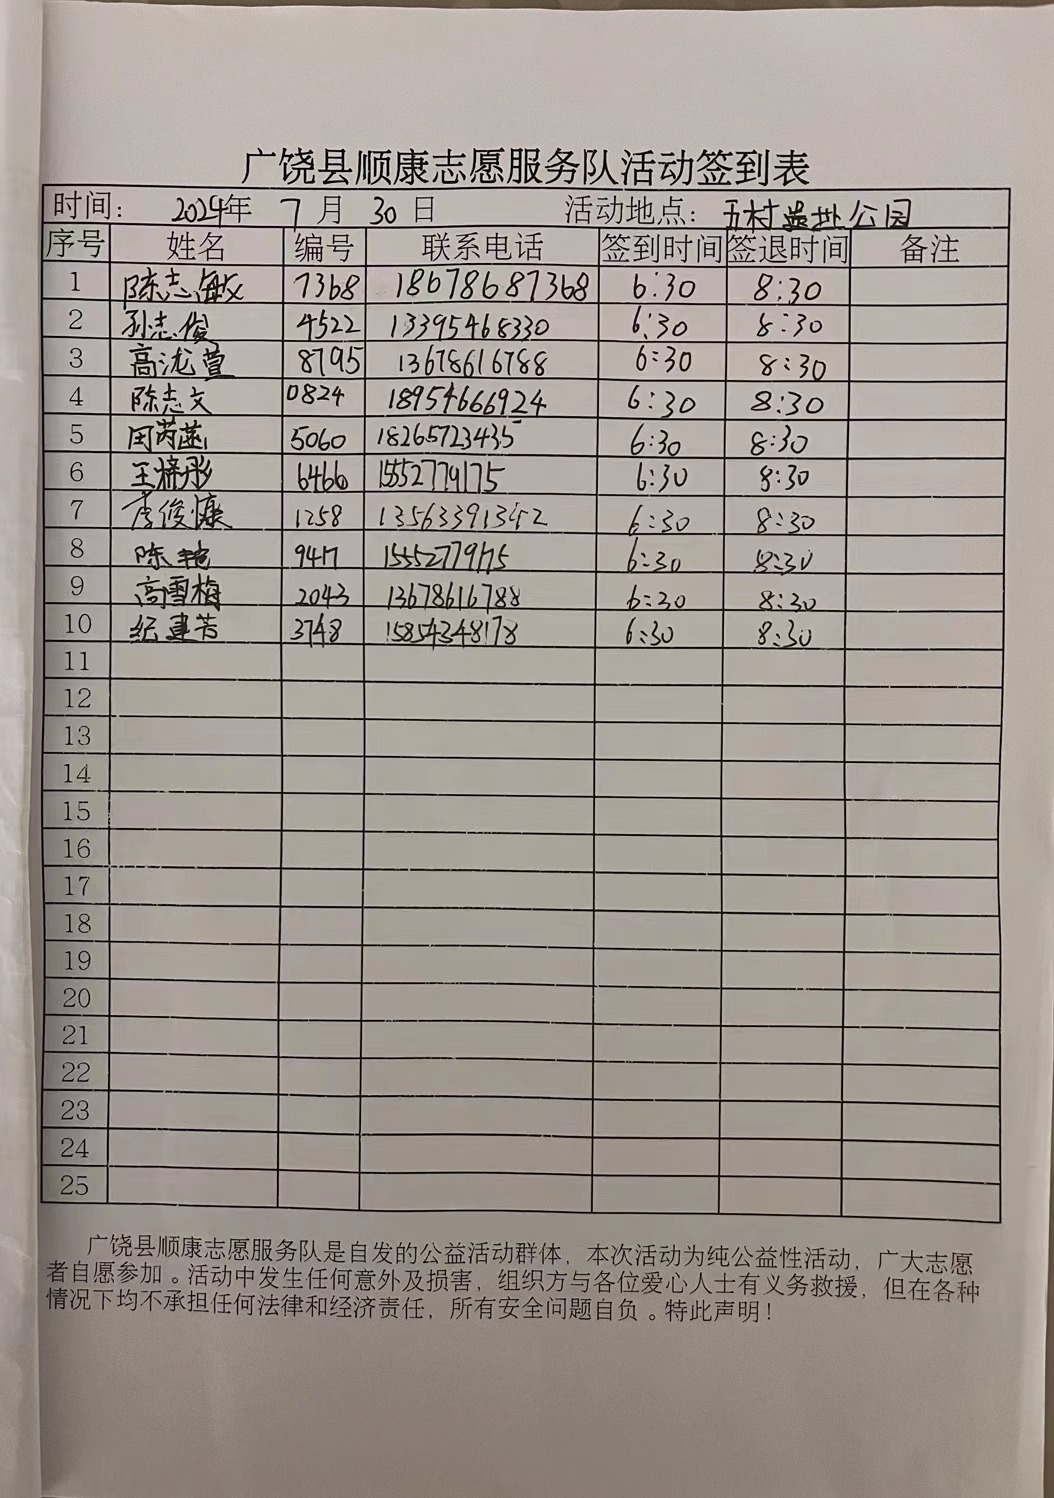 广饶县顺康志愿服务队活动签到表
时间： 2024年 7 月 30 日 活动地点：五村遗址公园
序号 姓名 编号 联系电话 签到时间 签退时间 备注
1 陈志敏 7368 18678687368 6:30 8:30
2 孙志俊 4522 13395468330 6:30 8:30
3 高泷萱 8795 13678616788 6:30 8:30
4 陈志文 0824 18954666924 6:30 8:30
5 田芮菡 5060 18265723435 6:30 8:30
6 王梓彤 6466 15552779175 6:30 8:30
7 李俊慷 1258 13563391342 6:30 8:30
8 陈艳 9417 15552779175 6:30 8:30
9 高雪梅 2043 13678616788 6:30 8:30
10 纪建芳 3748 15854348178 6:30 8:30
11
12
13
14
15
16
17
18
19
20
21
22
23
24
25
广饶县顺康志愿服务队是自发的公益活动群体，本次活动为纯公益性活动，广大志愿
者自愿参加。活动中发生任何意外及损害，组织方与各位爱心人士有义务救援，但在各种
情况下均不承担任何法律和经济责任，所有安全问题自负。特此声明！